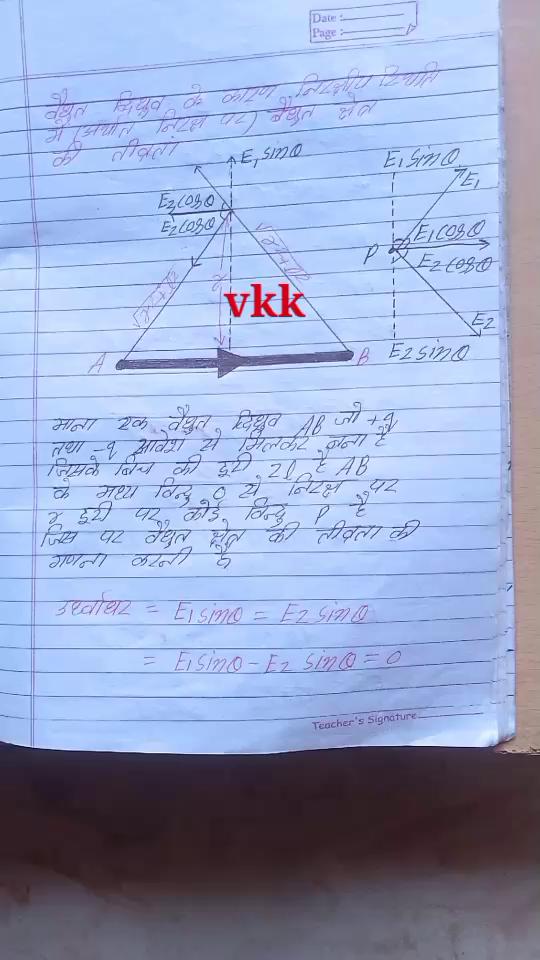 Date :
Page :
वैधुत द्विध्रुव के कारण निरक्षीय स्थिति
में (अर्थात निरक्ष पर) वैधुत क्षेत्र
की तीव्रता
E1 sinθ
E2 cosθ
E2 cosθ
√r²+l²
√r²+l²
r
vkk
A
B
E1 sinθ
E1
P
E1 cosθ
E2 cosθ
E2
E2 sinθ
माना एक वैधुत द्विध्रुव AB जो +q
तथा -q आवेश से मिलकर बना है
जिसके बिच की दुरी 2l है AB
के मध्य विन्दु O से निरक्ष पर
r दुरी पर कोई विन्दु P है
जिस पर वैधुत क्षेत्र की तीव्रता की
गणना करनी है
उर्ध्वाधर = E1 sinθ = E2 sinθ
= E1 sinθ - E2 sinθ = 0
Teacher's Signature